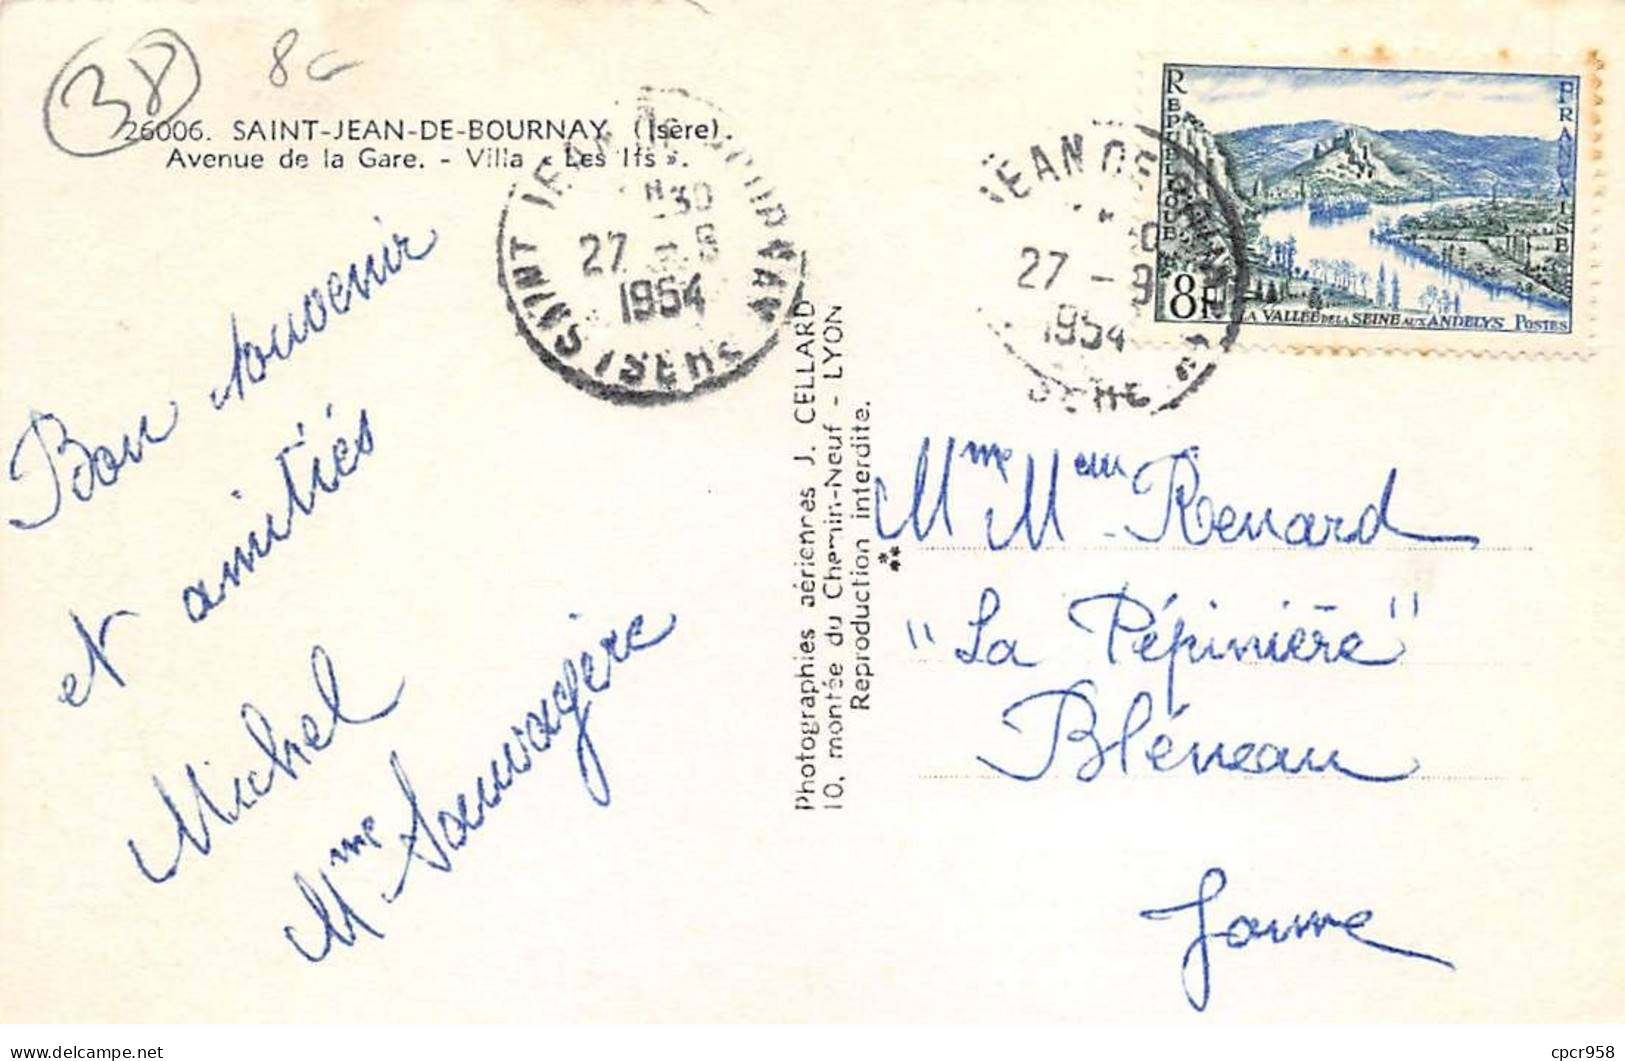 38
8c
26006. SAINT-JEAN-DE-BOURNAY (Isère).
Avenue de la Gare. - Villa « Les Ifs ».
SAINT JEAN DE BOURNAY
30
27 - 9
1954
ISERE
JEAN DE
27 - 9
1954
ISERE
REPUBLIQUE FRANÇAISE
8F
LA VALLEE DE LA SEINE AUX ANDELYS POSTES
Bon souvenir
et amitiés
Michel
Mme Sauvagère
Photographies aériennes J. CELLARD
10, montée du Chemin-Neuf - LYON
Reproduction interdite.
Mme M Renard
"La Pépinière"
Bléneau
Yonne
cpcr958